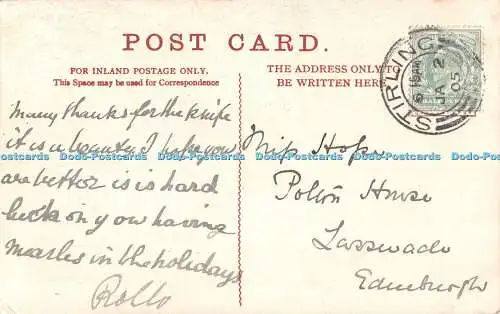 POST CARD.
FOR INLAND POSTAGE ONLY.
This Space may be used for Correspondence
THE ADDRESS ONLY TO
BE WRITTEN HERE
STIRLING
JA 2
05
Many thanks for the knife
it is a beauty I hope you
are better is is hard
luck on you having
Measles in the holidays
Rollo
Miss Hope
House
Lasswade
Edinburgh
Dodo-Postcards Dodo-Postcards Dodo-Postcards Dodo-Postcards Dodo-Postcards